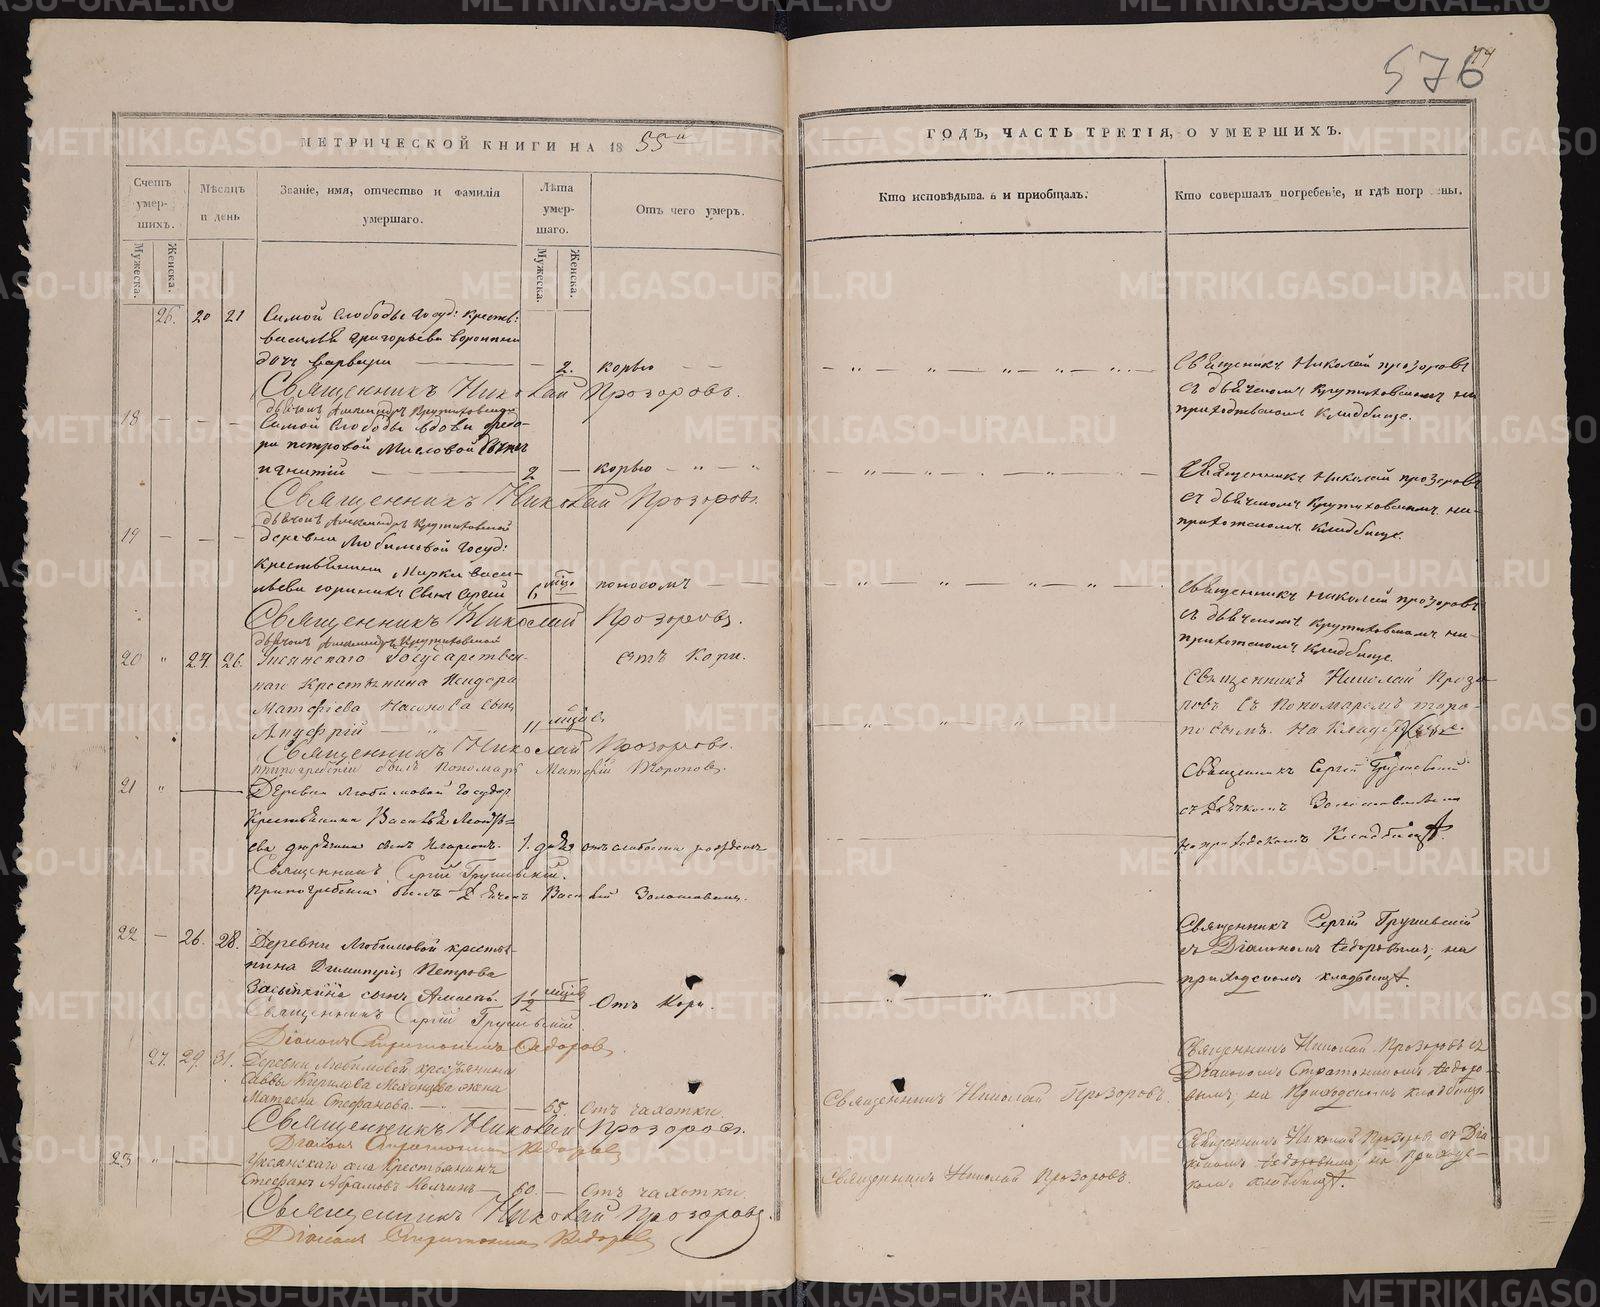 576
МЕТРИЧЕСКОЙ КНИГИ НА 18 55й
ГОДЪ, ЧАСТЬ ТРЕТІЯ, О УМЕРШИХЪ.
Счетъ умер-шихъ.
Мужеска.
Женска.
Мѣсяцъ и день
Званіе, имя, отчество и фамилія умершаго.
Лѣта умер-шаго.
Мужеска.
Женска.
Отъ чего умеръ.
Кто исповѣдыва и пріобщалъ.
Кто совершалъ погребеніе, и гдѣ погр ены.
26. 20 21 Самой Слободы Госуд: Крестья:
Василья Григорьева
дочь Варвара 2. корью
Священникъ Николай Прозоровъ.
дьячокъ Александръ Крутиховской
Священникъ Николай Прозоровъ
съ дьячкомъ Крутиховскимъ на
приходскомъ кладбище.
18 Самой Слободы вдовы Ѳедо-
ры Петровой Масловой сынъ
Игнатій 2 корью
Священникъ Николай Прозоровъ.
дьячокъ Александръ Крутиховской
Священникъ Николай Прозоровъ
съ дьячкомъ Крутиховскимъ на
приходскомъ кладбище.
19 деревни Любимовой Госуд:
крестьянина Марка Васи-
льева сынъ Сергій 6 мѣс. поносомъ
Священникъ Николай Прозоровъ.
дьячокъ Александръ Крутиховской
Священникъ Николай Прозоровъ
съ дьячкомъ Крутиховскимъ на
приходскомъ кладбище.
20 24. 26. Уксянскаго Государствен-
наго Крестьянина
Матѳеева Насонова сынъ
Андрій 11 мѣсяцовъ отъ Кори.
Священникъ Николай Прозоровъ.
при погребеніи былъ Пономарь Матѳій Тороповъ.
Священникъ Николай Прозо-
ровъ съ Пономаремъ Торо-
повымъ. на кладбище.
21 Деревни Любимовой Госудор
Крестьянина Василья Леонтье-
ва сынъ Иларіонъ. 1. дня отъ слабости
Священникъ Сергій Грушевскій.
При погребеніи былъ Дьячокъ Василій
Священникъ Сергій Грушевскій
съ Дьячкомъ
на приходскомъ Кладбищѣ.
22 26. 28. Деревни Любимовой кресть-
янина Димитрія Петрова
Засыпкина сынъ 1½ мѣсяцъ Отъ Кори.
Священникъ Сергій Грушевскій
Діаконъ Стратоникъ Ѳедоровъ.
Священникъ Сергій Грушевскій
съ Діакономъ Ѳедоровымъ, на
приходскомъ кладбищѣ.
27. 29. 31. Деревни Любимовой крестьянина
Саввы Кирилова жена
Матрена Стефанова. 65. Отъ чахотки.
Священникъ Николай Прозоровъ.
Діаконъ Стратоникъ Ѳедоровъ
Священникъ Николай Прозоровъ.
Священникъ Николай Прозоровъ съ
Діакономъ Стратоникомъ Ѳедоро-
вымъ, на Приходскомъ кладбищѣ
23 Уксянскаго села крестьянинъ
Стефанъ Абрамовъ 60. Отъ чахотки.
Священникъ Николай Прозоровъ.
Діаконъ Стратоникъ Ѳедоровъ
Священникъ Николай Прозоровъ.
Священникъ Николай Прозоровъ съ Діа-
кономъ Ѳедоровымъ, на Приходс-
комъ кладбищѣ.
METRIKI.GASO-URAL.RU